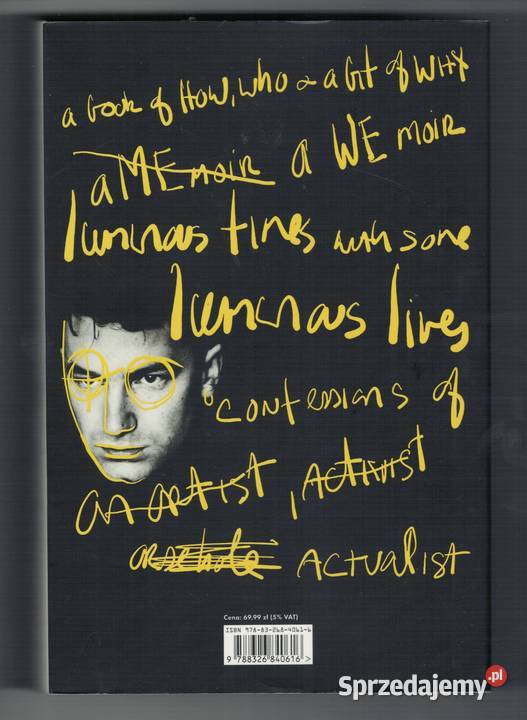 a book of HOW, who & a bit of WHY
a MEmoir a WE moir
luminous times with some
luminous lives
confessions of
an artist, Activist
arsehole Actualist
Cena: 69,99 zł (5% VAT)
ISBN 978-83-268-4061-6
9 788326 840616 >
Sprzedajemy.pl